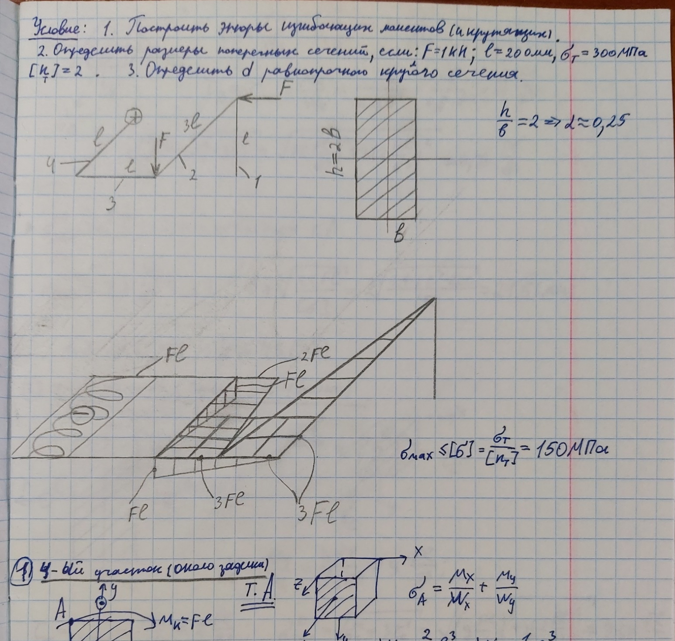 Условие: 1. Построить эпюры изгибающих моментов (и крутящих).
2. Определить размеры поперечных сечений, если: F=1кН; l=200мм, σт=300МПа
[nт]=2. 3. Определить d равнопрочного круглого сечения.
F
l
3l
F
l
4
l
3
2
1
h=2B
B
h/b=2 => α≈0,25
Fl
2Fl
Fl
Fl
3Fl
3Fl
σmax ≤ [σ] = σт/[nт] = 150МПа
1) 4-ый участок (около заделки)
A
y
Mк=Fl
Т. А.
x
z
σA = Mx/Wx + My/Wy